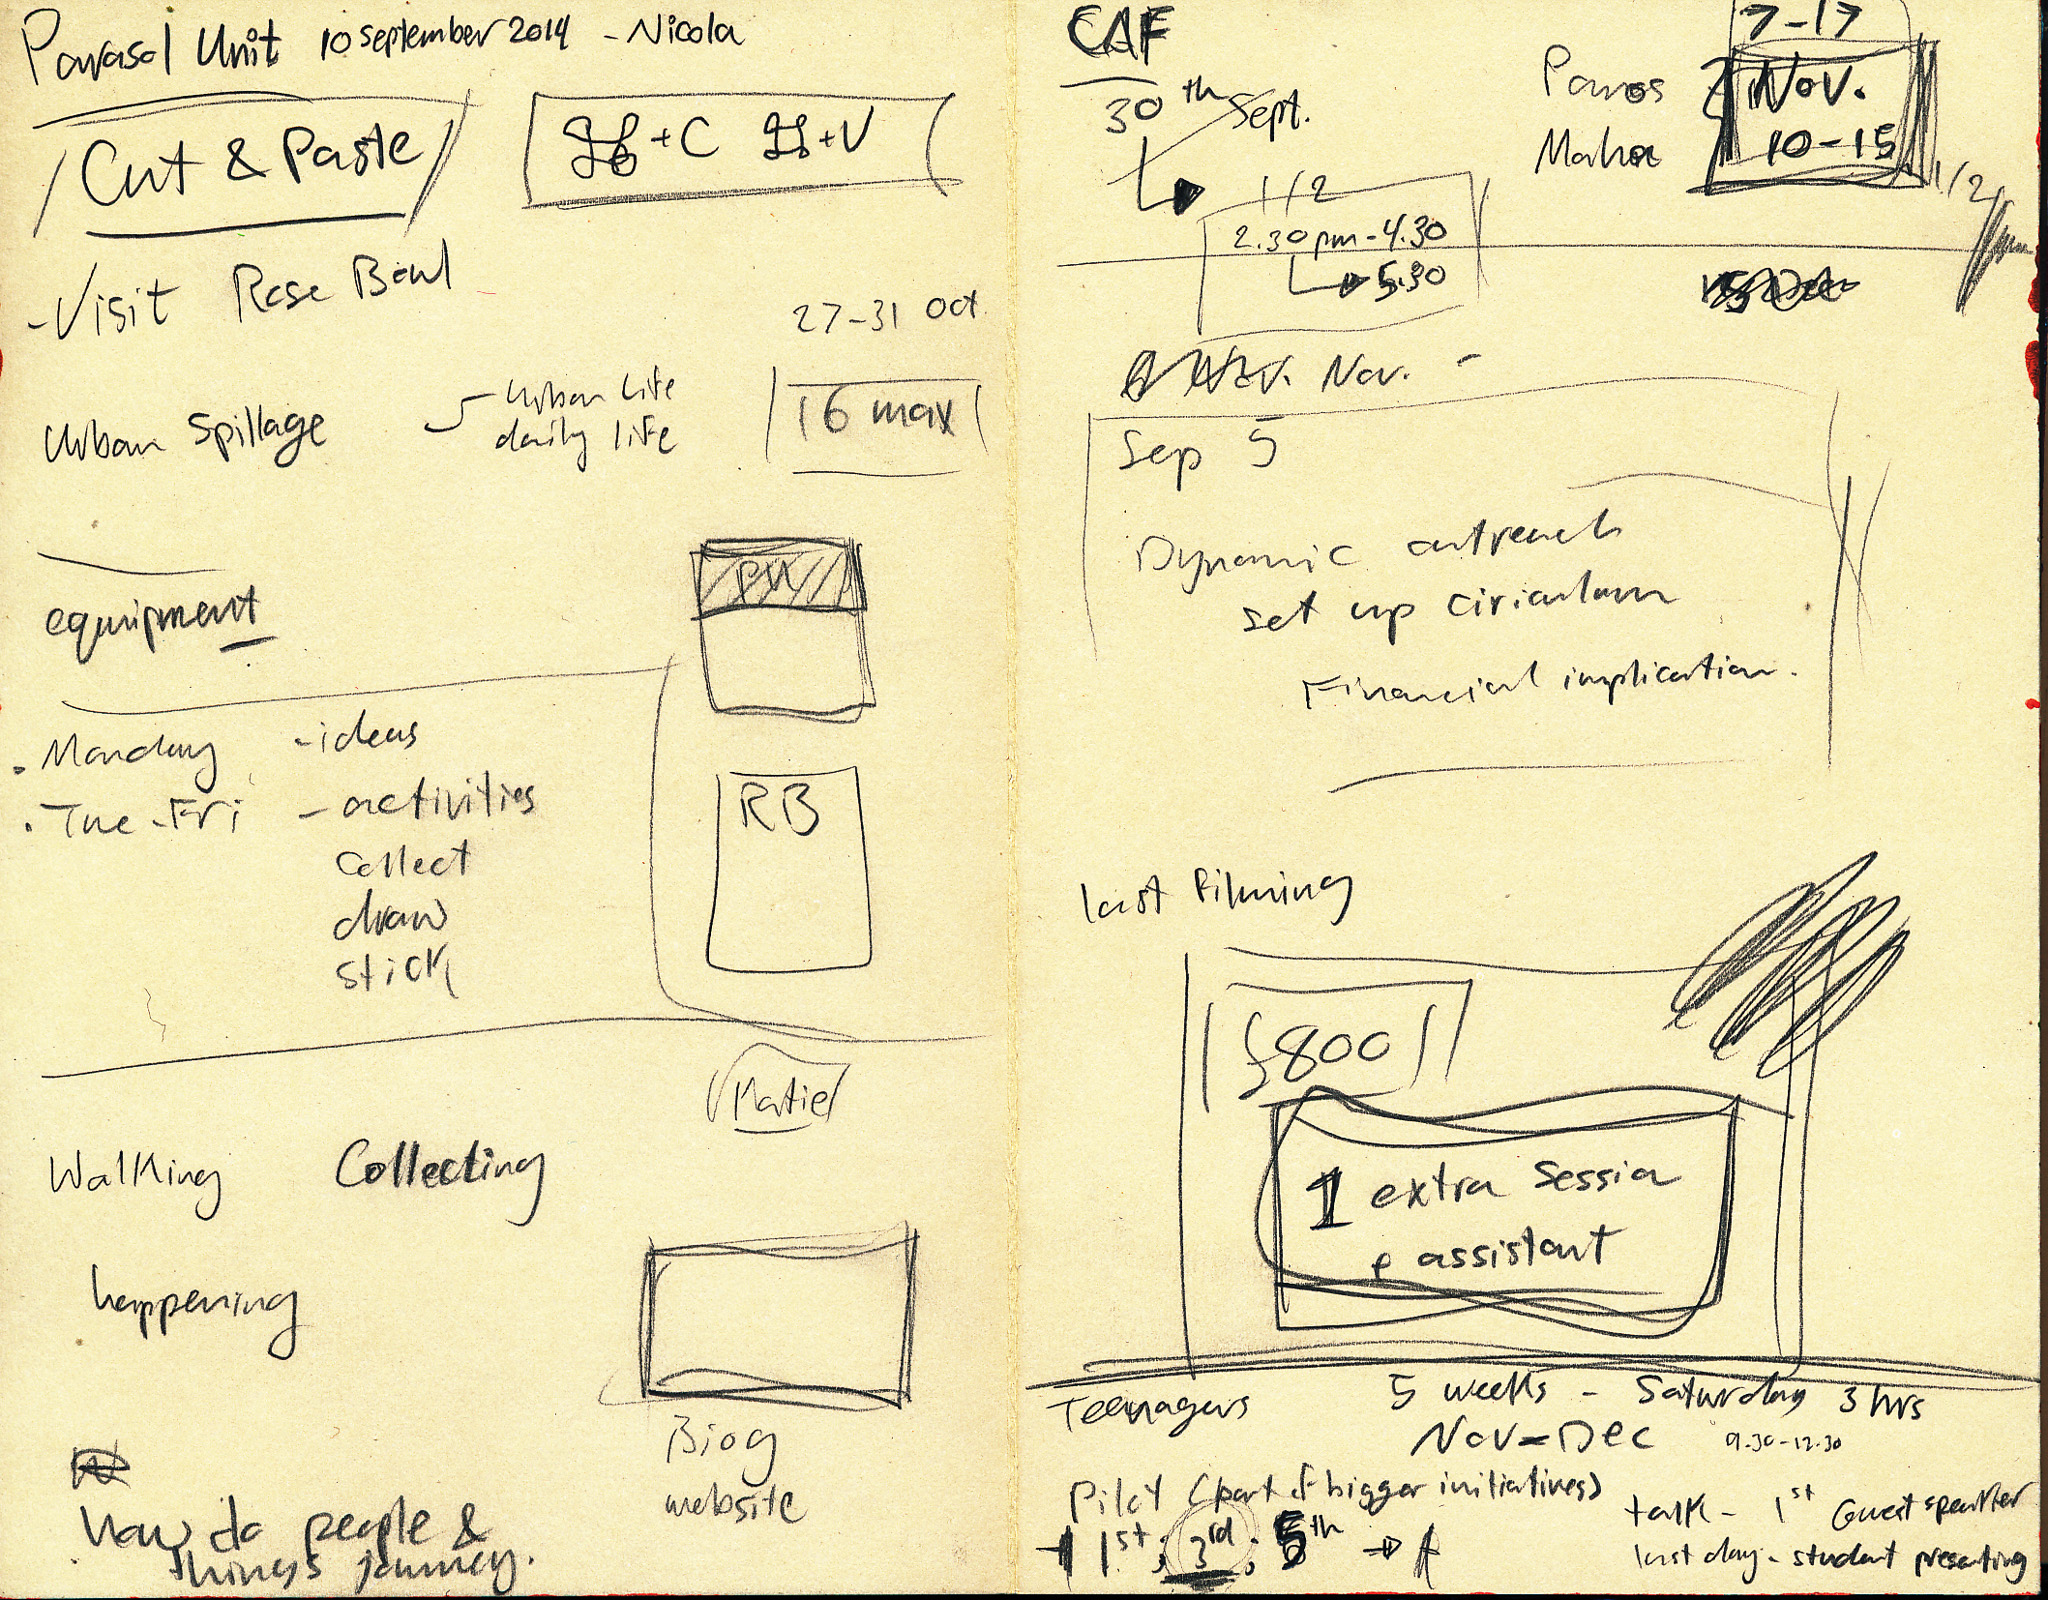 Parasol Unit 10 september 2014 - Nicola
Cut & Paste
⌘+C ⌘+V
- Visit Rose Bowl
27-31 Oct
Urban Spillage
Urban Life
daily life
16 max
equipment
PU
. Monday - ideas
. Tue-Fri - activities
collect
draw
stick
RB
Katie
Walking Collecting
happening
Biog
website
how do people &
things journey.
CAF
30th Sept.
1/2
2.30pm-4.30
5.30
7-17
Nov.
10-15
1/2
Nov. -
Sep 5
Dynamic outreach
set up ciriculum
Financial implication.
last filming
£800
1 extra session
e assistant
Teenagers 5 weeks - Saturday 3 hrs
Nov-Dec 9.30-12.30
Pilot (part of bigger initiatives)
1st, 3rd, 5th
talk - 1st Guest speaker
last day - student presenting